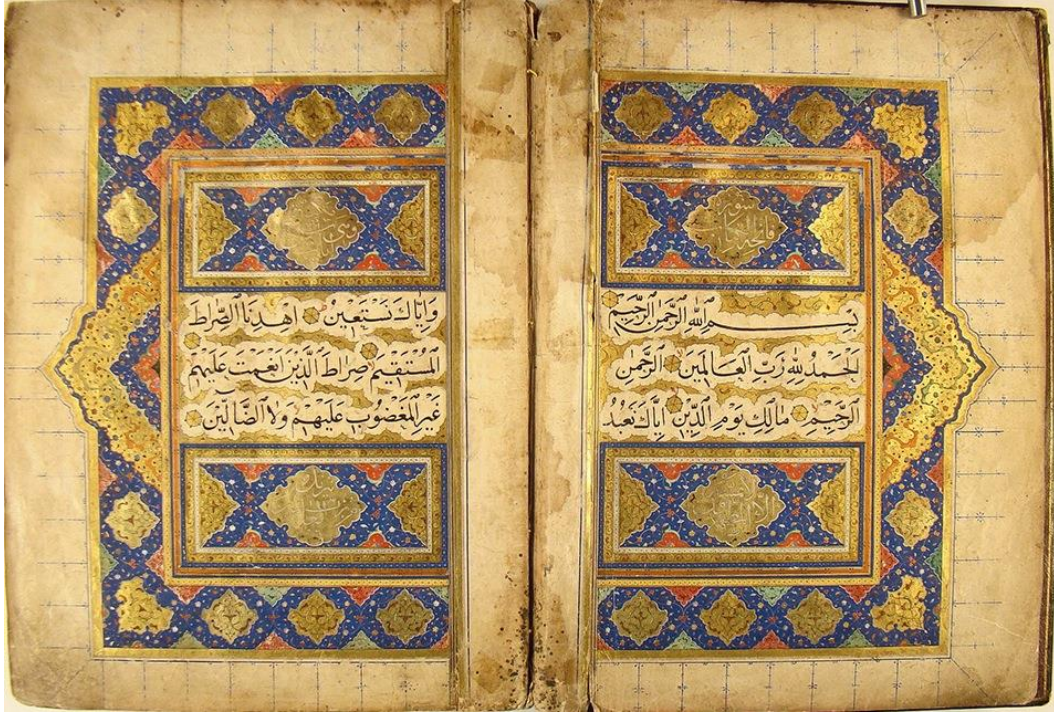 سورة
فاتحة الكتاب
بِسْمِ اللّٰهِ الرَّحْمٰنِ الرَّحِيْمِ
اَلْحَمْدُ لِلّٰهِ رَبِّ الْعَالَمِيْنَ الرَّحْمٰنِ
الرَّحِيْمِ مَالِكِ يَوْمِ الدِّيْنِ اِيَّاكَ نَعْبُدُ
وَاِيَّاكَ نَسْتَعِيْنُ اِهْدِنَا الصِّرَاطَ
الْمُسْتَقِيْمَ صِرَاطَ الَّذِيْنَ اَنْعَمْتَ عَلَيْهِمْ
غَيْرِ الْمَغْضُوْبِ عَلَيْهِمْ وَلَا الضَّالِّيْنَ